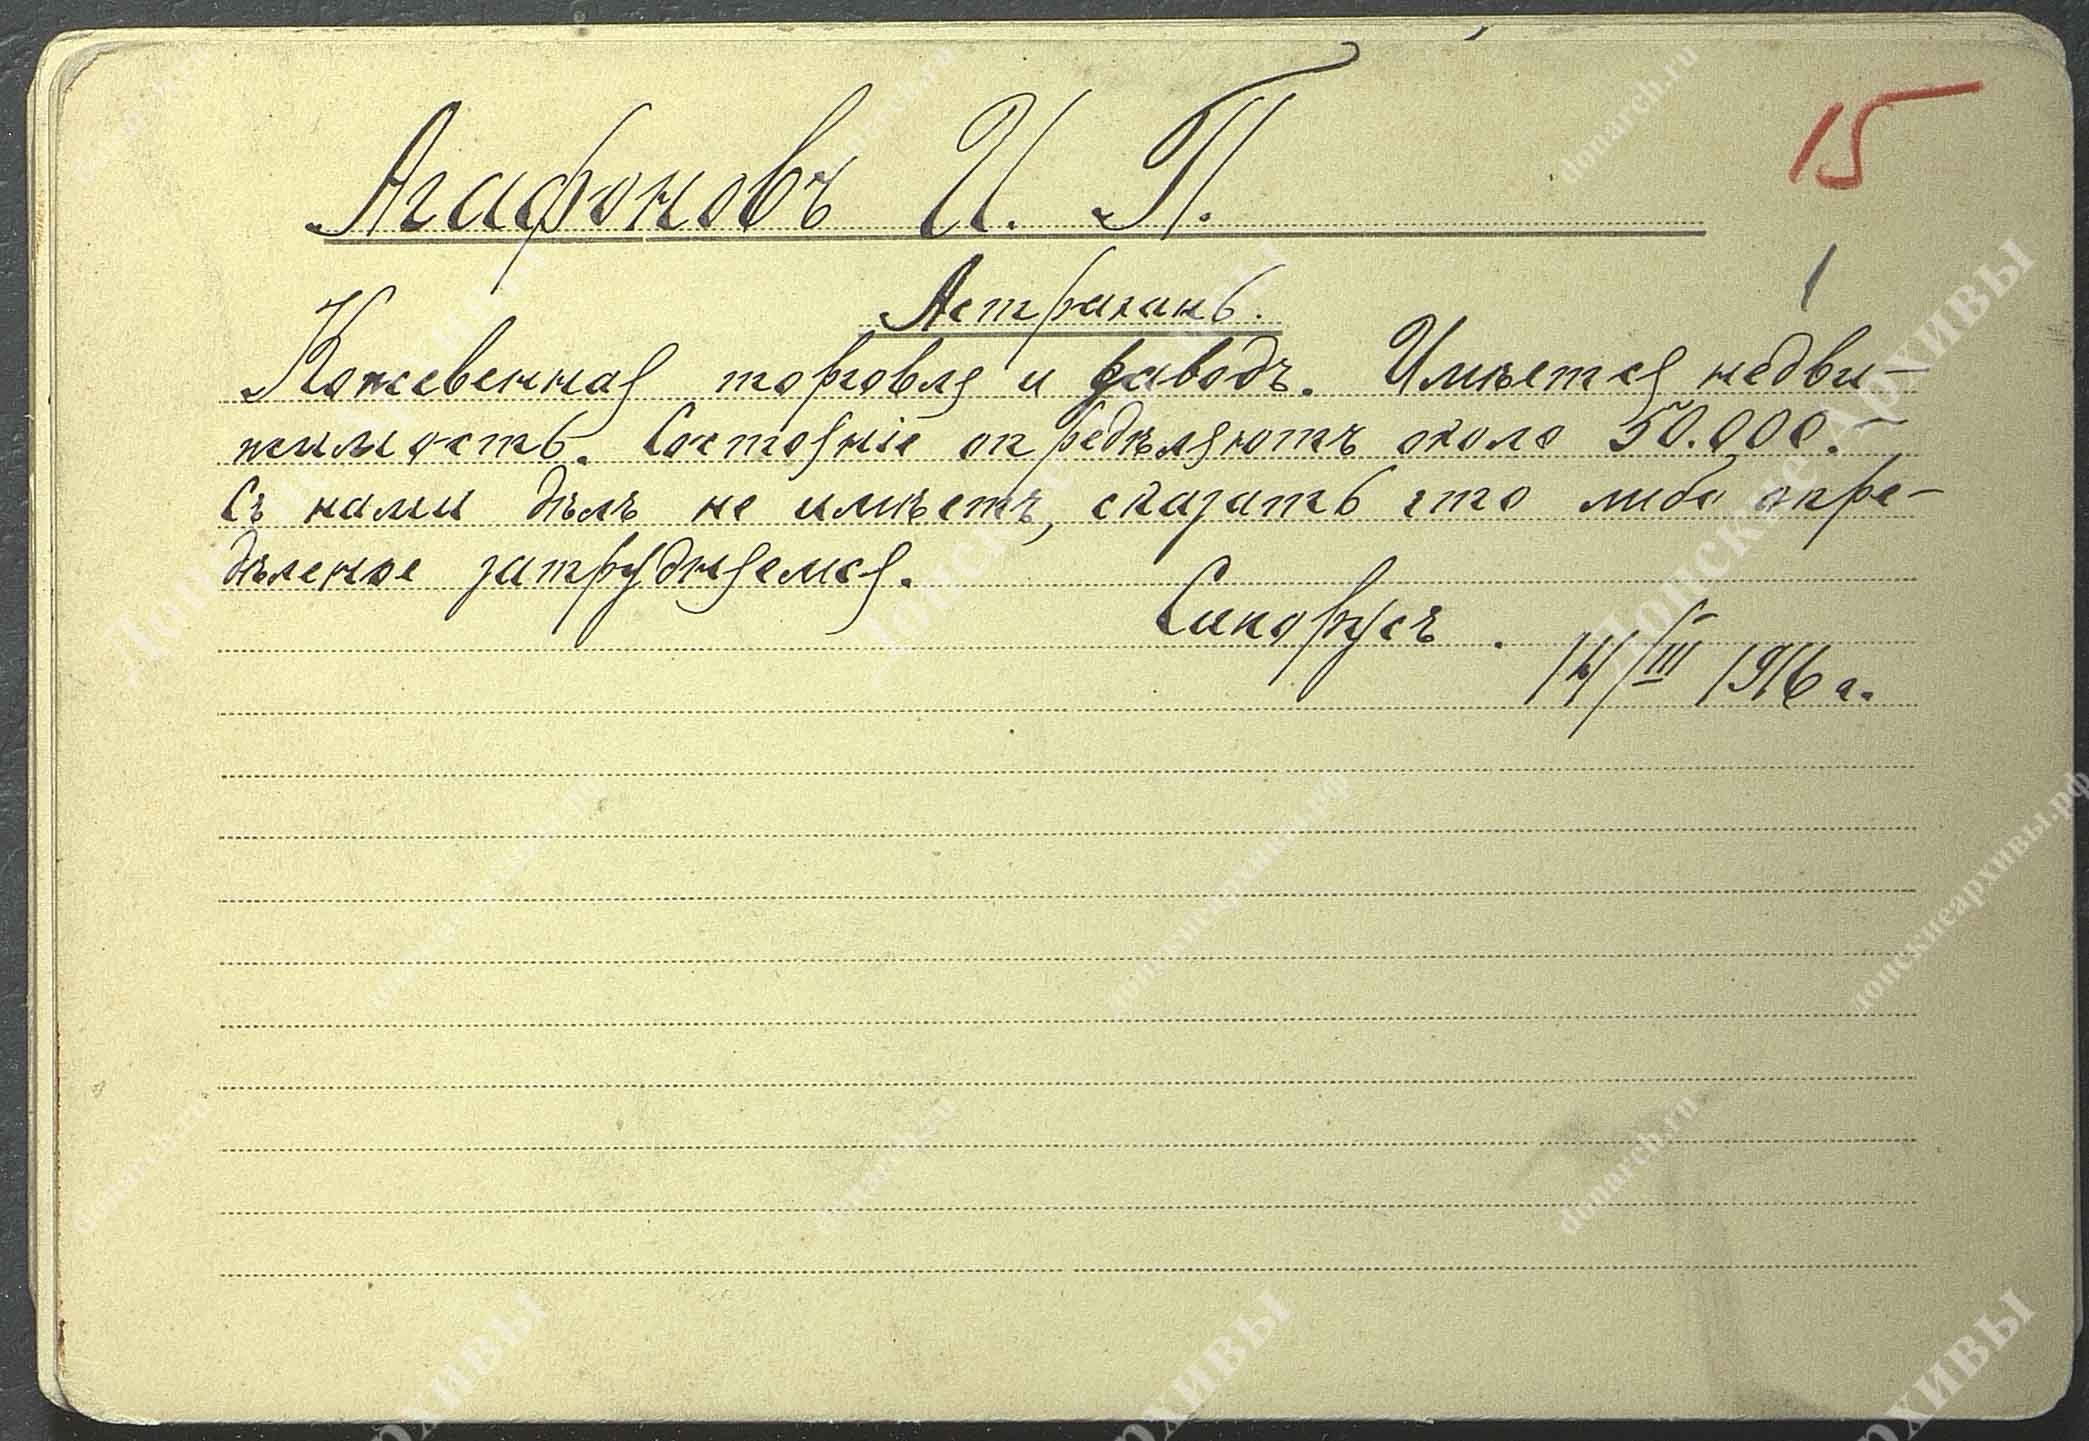 15
Агафоновъ И. П.
Астрахань.
Кожевенная торговля и заводъ. Имѣется недви-
жимость. Состоянiе опредѣляютъ около 50.000.-
Съ нами дѣлъ не имѣетъ, сказать что либо опре-
дѣленое затрудняемся.
Сикорусъ.
14/III 1916 г.
Донские Архивы
donarch.ru
донскиеархивы.рф